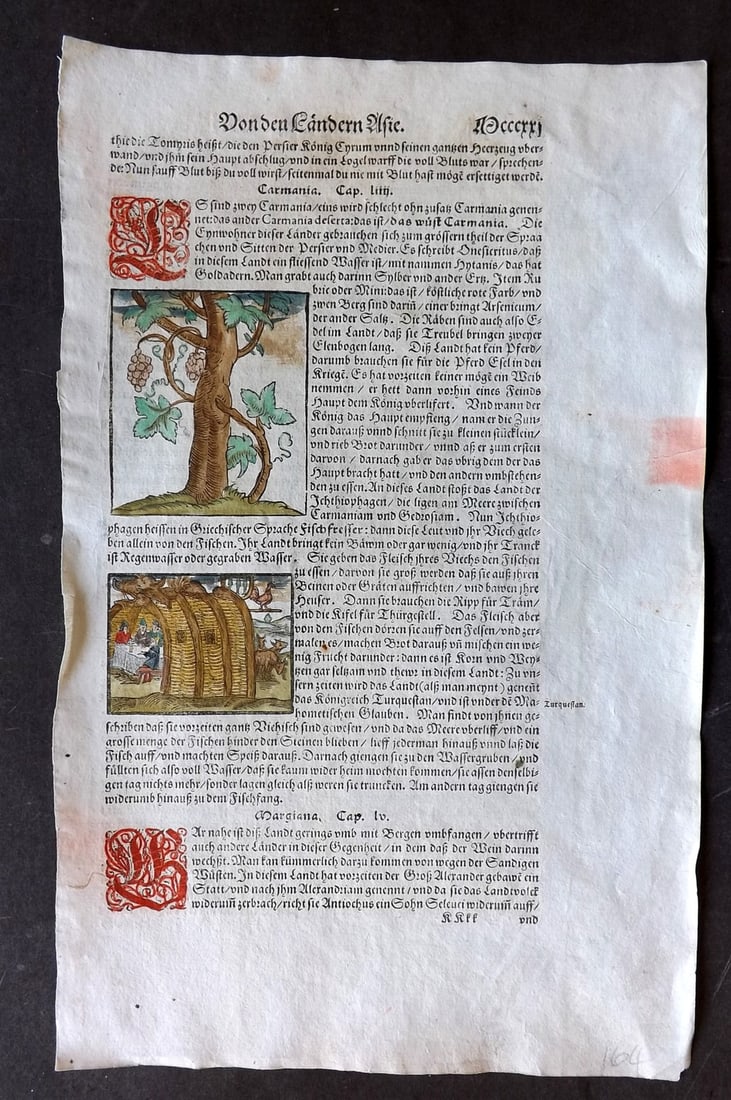 Von den Ländern Asie. Mcccxxj
thie die Tomyris heißt/die den Persier König Cyrum vnnd seinen gantzen Heerzeug vber-
wand/vnd jhm sein Haupt abschlug/vnd in ein Logel warff die voll Bluts war/sprechen-
de: Nun sauff Blut biß du voll wirst/seitenmal du nie mit Blut hast mögē ersettiget werdē.
Carmania. Cap. liiij.
ES sind zwey Carmania/eins wird schlecht ohn zusatz Carmania genen-
net: das ander Carmania deserta: das ist/das wüst Carmania. Die
Eynwohner dieser Länder gebrauchen sich zum grössern theil der Spraa
chen vnd Sitten der Persier vnd Medier. Es schreibt Onesicritus/daß
in diesem Land ein fliessend Wasser ist/mit nammen Hytanis/das hat
Goldadern. Man grabt auch darinn Sylber vnd ander Ertz. Item Ru
bric oder Mini: das ist/köstliche rote Farb/vnd
zwen Berg sind dariñ/einer bringt Arsenicum/
der ander Saltz. Die Räben sind auch also E-
del im Landt/daß sie Treubel bringen zweyer
Elenbogen lang. Diß Landt hat kein Pferd/
darumb brauchen sie für die Pferd Esel in den
Kriegē. Es hat vorzeiten keiner mögē ein Weib
nemmen/er hett dann vorhin eines Feinds
Haupt dem König vberlifert. Vnd wann der
König das Haupt empfieng/nam er die Zun-
gen darauß vnnd schnitt sie zu kleinen stücklein/
vnd rieb Brot darunder/vnnd aß er zum ersten
darvon/darnach gab er das vbrig dem der das
Haupt bracht hatt/vnd den andern vmbstehen-
den zu essen. An dieses Landt stoßt das Landt der
Ichthiophagen/die ligen am Meere zwischen
Carmaniam vnd Gedrosiam. Nun Ichthio-
phagen heissen in Griechischer Sprache Fisch fresser: dann diese Leut vnd jhr Viech gele-
ben allein von den Fischen. Ihr Landt bringt kein Bäwm oder gar wenig/vnd jhr Tranck
ist Regenwasser oder gegraben Wasser. Sie geben das Fleisch jhres Viechs den Fischen
zu essen/darvon sie groß werden daß sie auß jhren
Beinen oder Gräten auffrichten/vnd bawen jhre
Heuser. Dann sie brauchen die Ripp für Träm/
vnd die Kifel für Thürgestell. Das Fleisch aber
von den Fischen dörren sie auff den Felsen/vnd zer-
malen es/machen Brot darauß vñ mischen ein we-
nig Frucht darunder: dann es ist Korn vnd Wey-
tzen gar seltzam vnd thewr in diesem Landt: Zu vn-
sern zeiten wird das Landt (alß man meynt) geneñt
das Königreich Turquestan/vnd ist vnder dē Ma-
hometischen Glauben. Man findt von jhnen ge-
Turquestan.
schriben daß sie vorzeiten gantz Viehisch sind gewesen/vnd da das Meere vberliff/vnd ein
grosse menge der Fischen hinder den Steinen blieben/lieff jederman hinauß vnnd laß die
Fisch auff/vnd machten Speiß darauß. Darnach giengen sie zu den Wassergruben/vnd
füllten sich also voll Wasser/daß sie kaum wider heim mochten kommen/sie assen denselbi-
gen tag nichts mehr/sonder lagen gleich alß weren sie truncken. Am andern tag giengen sie
widerumb hinauß zu dem Fischfang.
Margiana. Cap. lv.
GAr nahe ist diß Landt gerings vmb mit Bergen vmbfangen/vbertrifft
auch andere Länder in dieser Gegenheit/in dem daß der Wein darinn
wechßt. Man kan kümmerlich darzu kommen von wegen der Sandigen
Wüsten. In diesem Landt hat vorzeiten der Groß Alexander gebawē ein
Statt/vnd nach jhm Alexandriam genennt/vnd da sie das Landtvolck
widerum̄ zerbrach/richt sie Antiochus ein Sohn Seleuci widerum̄ auff/
KKkk vnd
164